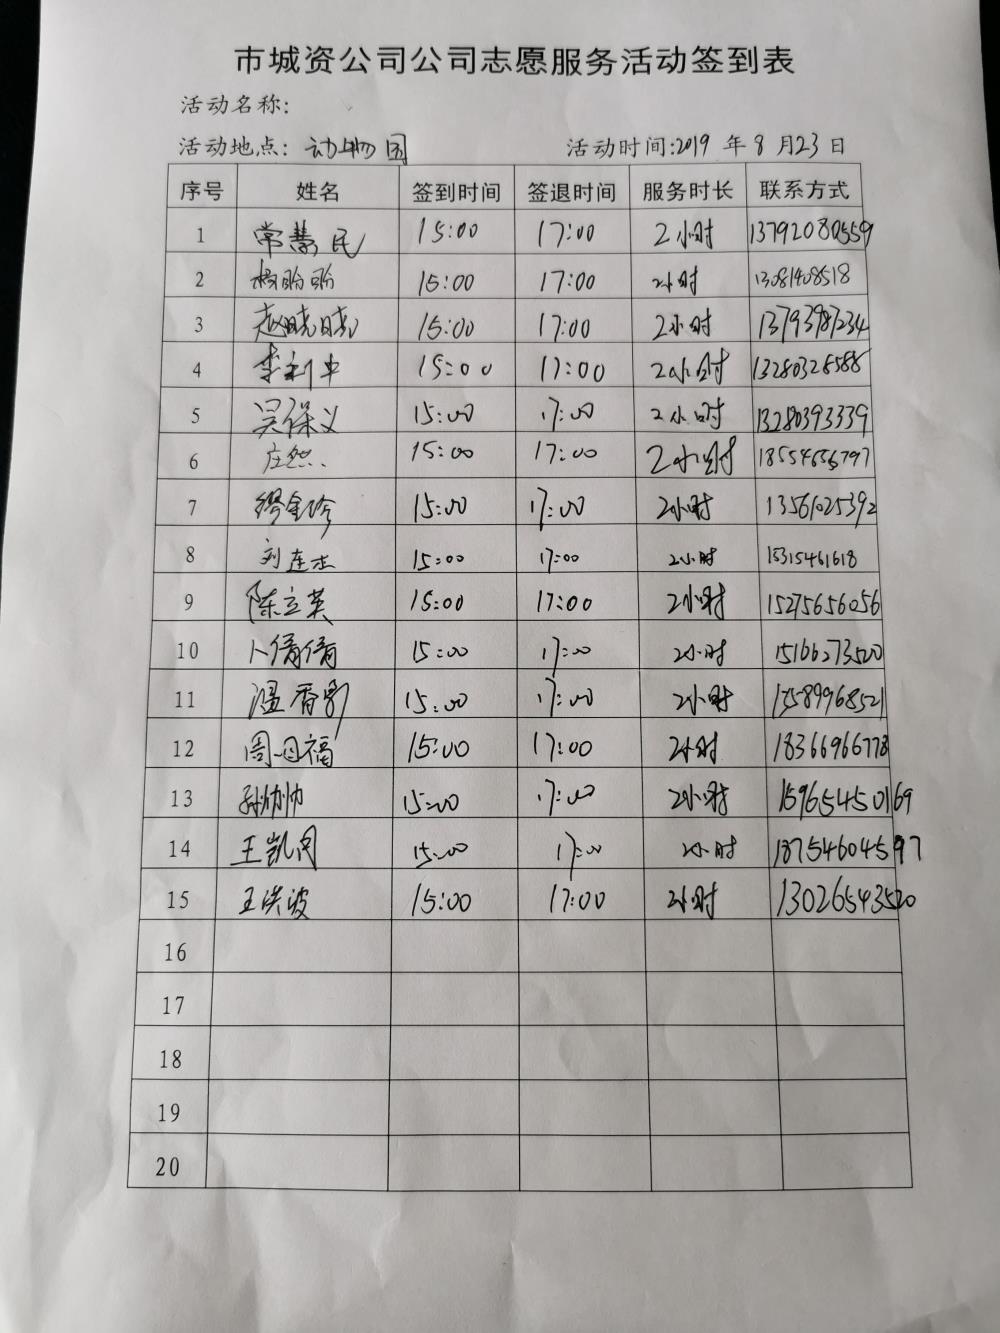 市城资公司公司志愿服务活动签到表
活动名称:
活动地点: 动物园 活动时间:2019 年 8 月 23 日
序号 姓名 签到时间 签退时间 服务时长 联系方式
1 常慧民 15:00 17:00 2小时 13792080559
2 15:00 17:00 2小时 13081408518
3 赵晓晓 15:00 17:00 2小时 13793987234
4 李利中 15:00 17:00 2小时 13280328588
5 吴保义 15:00 17:00 2小时 13280393339
6 庄然 15:00 17:00 2小时 18554656797
7 缪金玲 15:00 17:00 2小时 13561025392
8 刘连杰 15:00 17:00 2小时 15315461618
9 陈立英 15:00 17:00 2小时 15275656056
10 卜倩倩 15:00 17:00 2小时 15166273520
11 温香彩 15:00 17:00 2小时 15589968521
12 周日福 15:00 17:00 2小时 18366966778
13 孙帅帅 15:00 17:00 2小时 15965450169
14 王凯 15:00 17:00 2小时 18754604597
15 王洪波 15:00 17:00 2小时 13026543520
16
17
18
19
20